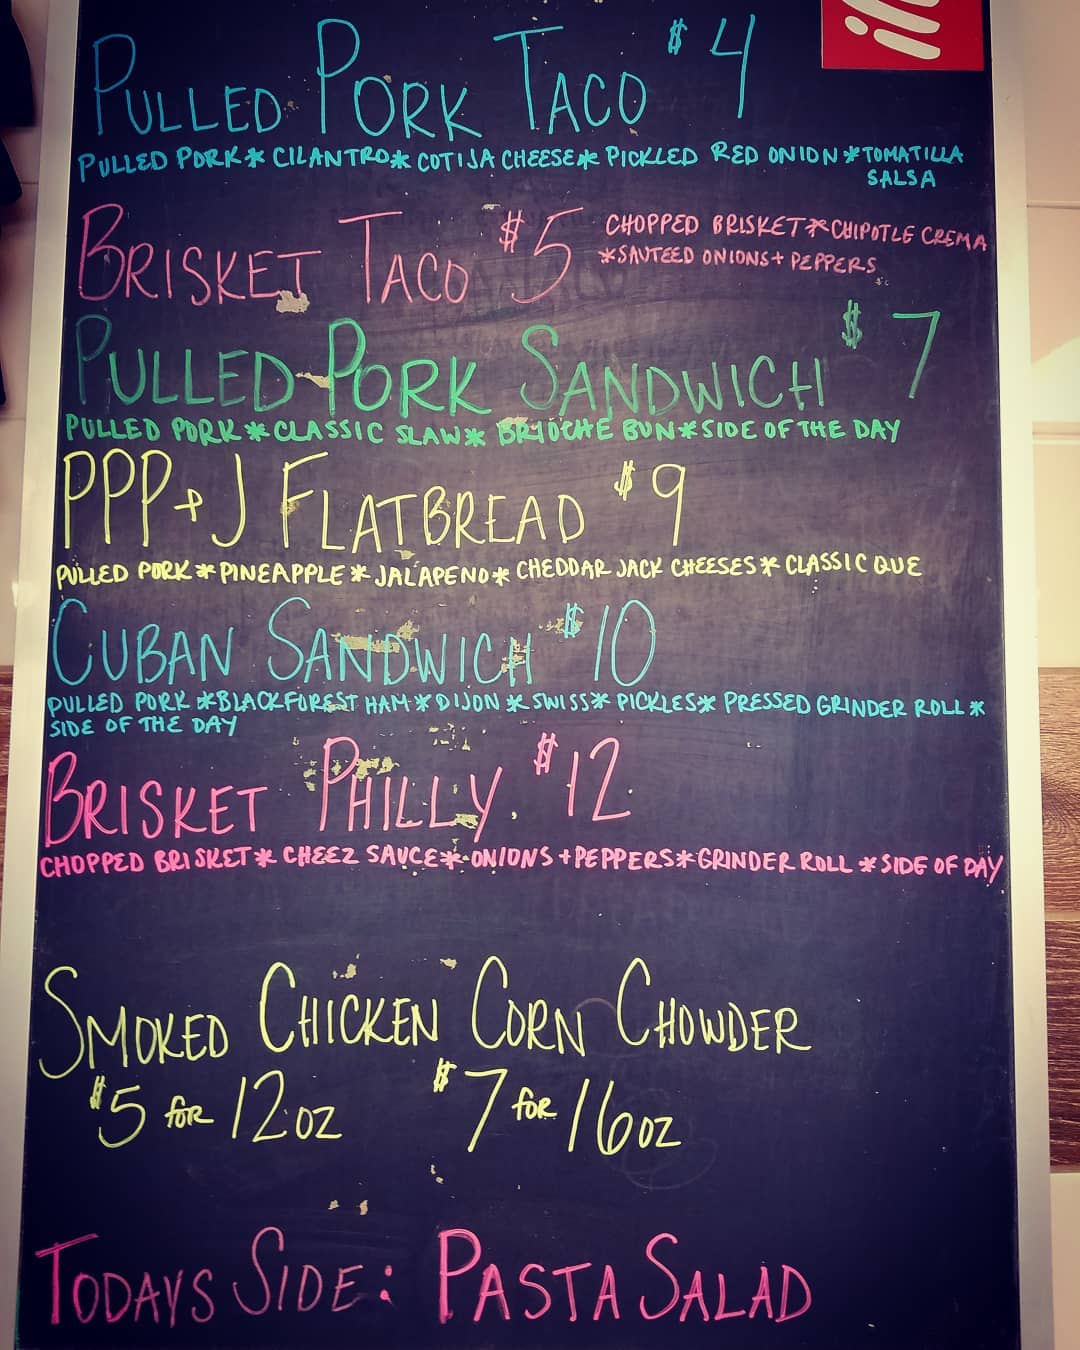 PULLED PORK TACO $4
PULLED PORK * CILANTRO * COTIJA CHEESE * PICKLED RED ONION * TOMATILLA
SALSA
BRISKET TACO $5
CHOPPED BRISKET * CHIPOTLE CREMA
* SAUTEED ONIONS + PEPPERS
PULLED PORK SANDWICH $7
PULLED PORK * CLASSIC SLAW * BRIOCHE BUN * SIDE OF THE DAY
PPP + J FLATBREAD $9
PULLED PORK * PINEAPPLE * JALAPENO * CHEDDAR JACK CHEESES * CLASSIC QUE
CUBAN SANDWICH $10
PULLED PORK * BLACKFOREST HAM * DIJON * SWISS * PICKLES * PRESSED GRINDER ROLL *
SIDE OF THE DAY
BRISKET PHILLY $12
CHOPPED BRISKET * CHEEZ SAUCE * ONIONS + PEPPERS * GRINDER ROLL * SIDE OF DAY
SMOKED CHICKEN CORN CHOWDER
$5 FOR 12OZ $7 FOR 16OZ
TODAYS SIDE: PASTA SALAD